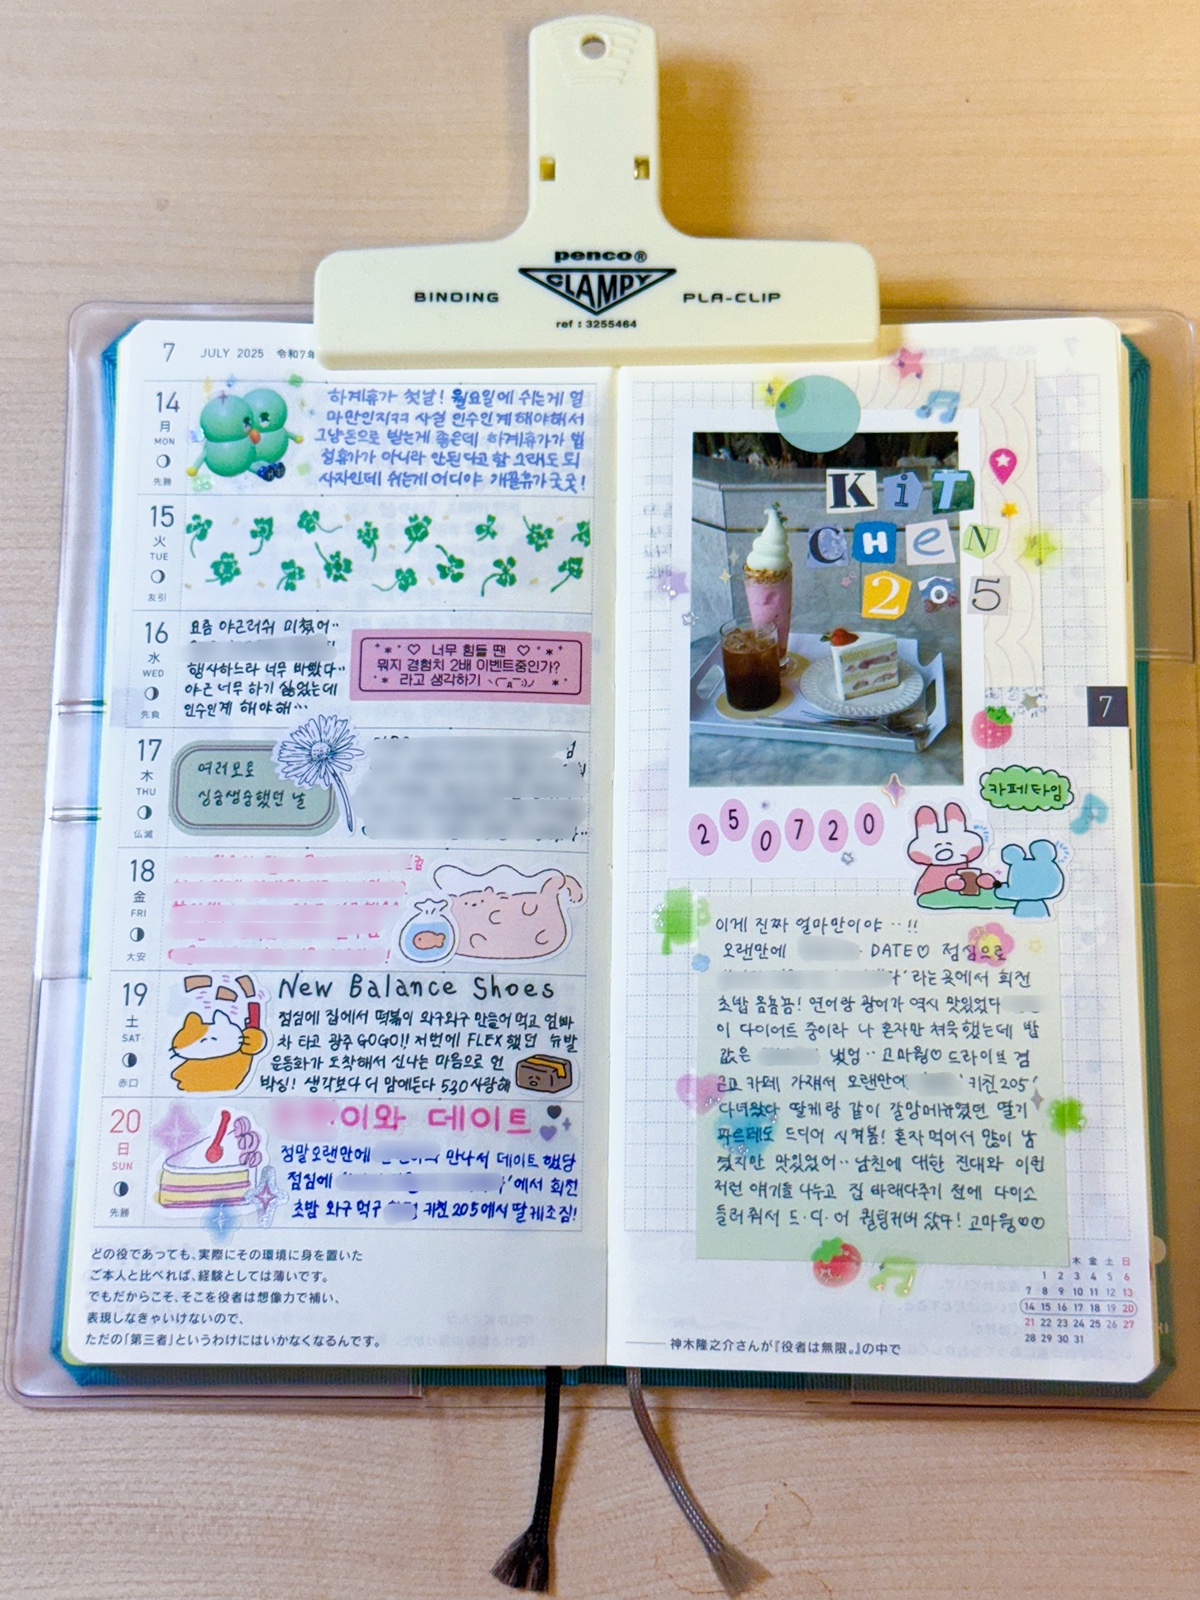 penco®
CLAMPY
BINDING
PLA-CLIP
ref : 3255464
7 JULY 2025 令和7年
14
月
MON
先勝
하계휴가 첫날! 월요일에 쉬는게 얼
마만인지ㅋㅋ 사실 인수인계 해야해서
그냥 돈으로 받는게 좋은데 하계휴가가 법
정휴가가 아니라 안된다고 함 그래도 되
사자인데 쉬는게 어디야 개꿀휴가굿굿!
15
火
TUE
友引
16
水
WED
先負
요즘 야근러쉬 미쳤어··
행사하느라 너무 바빴다··
야근 너무 하기 싫었는데
인수인계 해야해···
너무 힘들 땐
뭐지 경험치 2배 이벤트중인가?
라고 생각하기
17
木
THU
仏滅
여러모로
싱숭생숭했던 날
18
金
FRI
大安
19
土
SAT
赤口
New Balance Shoes
점심에 집에서 떡볶이 와구와구 만들어 먹고 엄빠
차 타고 광주 GOGO!! 저번에 FLEX했던 뉴발
운동화가 도착해서 신나는 마음으로 언
박싱! 생각보다 더 맘에든다 530 사랑해
20
日
SUN
先勝
이와 데이트
정말 오랜만에 만나서 데이트 했당
점심에 '에서 회전
초밥 와구 먹구 키친205에서 딸케조짐!
どの役であっても、実際にその環境に身を置いた
ご本人と比べれば、経験としては薄いです。
でもだからこそ、そこを役者は想像力で補い、
表現しなきゃいけないので、
ただの「第三者」というわけにはいかなくなるんです。
KiT
CHeN
205
7
카페타임
250720
이게 진짜 얼마만이야··!!
오랜만에 DATE♡ 점심으로
'라는곳에서 회전
초밥 욤뇸뇸! 연어랑 광어가 역시 맛있었다
이 다이어트 중이라 나 혼자만 쳐묵했는데 밥
값은 냈엄·· 고마웡♡ 드라이브 겸
근교 카페 가재서 오랜만에 '키친205'
다녀왔다 딸케랑 같이 갈망메뉴였던 딸기
파르페도 드디어 시켜봄! 혼자 먹어서 많이 남
겼지만 맛있었어·· 남친에 대한 진대와 이런
저런 얘기를 나누고 집 바래다주기 전에 다이소
들러줘서 드·디·어 퀼팅커버 샀구! 고마웡♡♡
木 金 土 日
1 2 3 4 5 6
7 8 9 10 11 12 13
14 15 16 17 18 19 20
21 22 23 24 25 26 27
28 29 30 31
神木隆之介さんが『役者は無限。』の中で